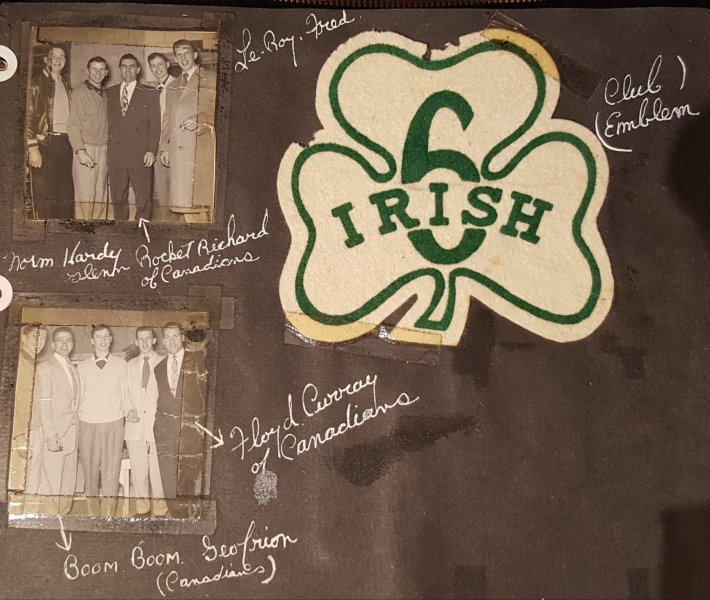 Le-Roy, Fred.
Club )
(Emblem
C
IRISH
Norm Hardy
Glenn
Rocket Richard
of Canadians
Floyd. Curray
of Canadians
Boom. Boom. Geofrion
(Canadians)